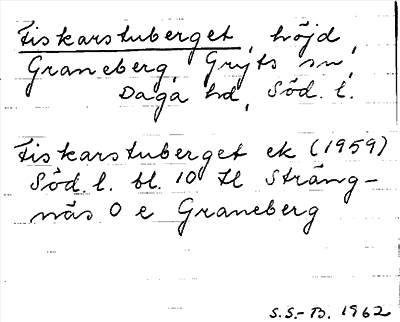 Fiskarstuberget, höjd,
Graneberg, Gryts sn,
Daga hd, Söd. l.
Fiskarstuberget ek (1959)
Söd. l. bl. 10 H Sträng-
näs O e Graneberg
S.S.-B. 1962